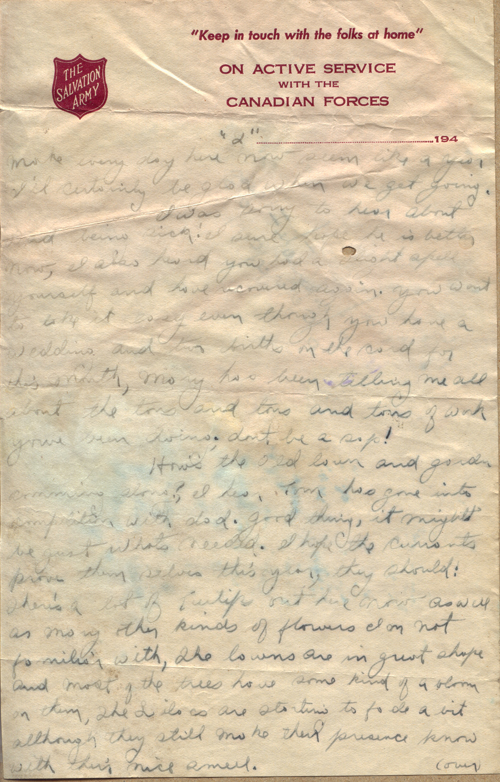 "Keep in touch with the folks at home"
THE SALVATION ARMY
ON ACTIVE SERVICE
WITH THE
CANADIAN FORCES
194
"2"
make every day here now seem like a year
I'll certainly be glad when we get going.
I was sorry to hear about
dad being sick. I sure hope he is better
now, I also heard you had a slight
yourself and have recovered again. You want
to take it easy even though you have a
wedding and two births on the card for
this month, Mary has been telling me all
about the tons and tons and tons of work
you've been doing; don't be a sap!
How's the old lawn and garden
coming along? I hear Tom has gone into
competition with dad. Good thing, it might
be just what's needed. I hope the currants
prove them selves this year, they should!
There's a lot of tulips out here now as well
as many other kinds of flowers I'm not
familiar with, the lawns are in great shape
and most of the trees have some kind of a bloom
on them, the lilacs are starting to fade a bit
although they still make their presence know
with their nice smell.
(over